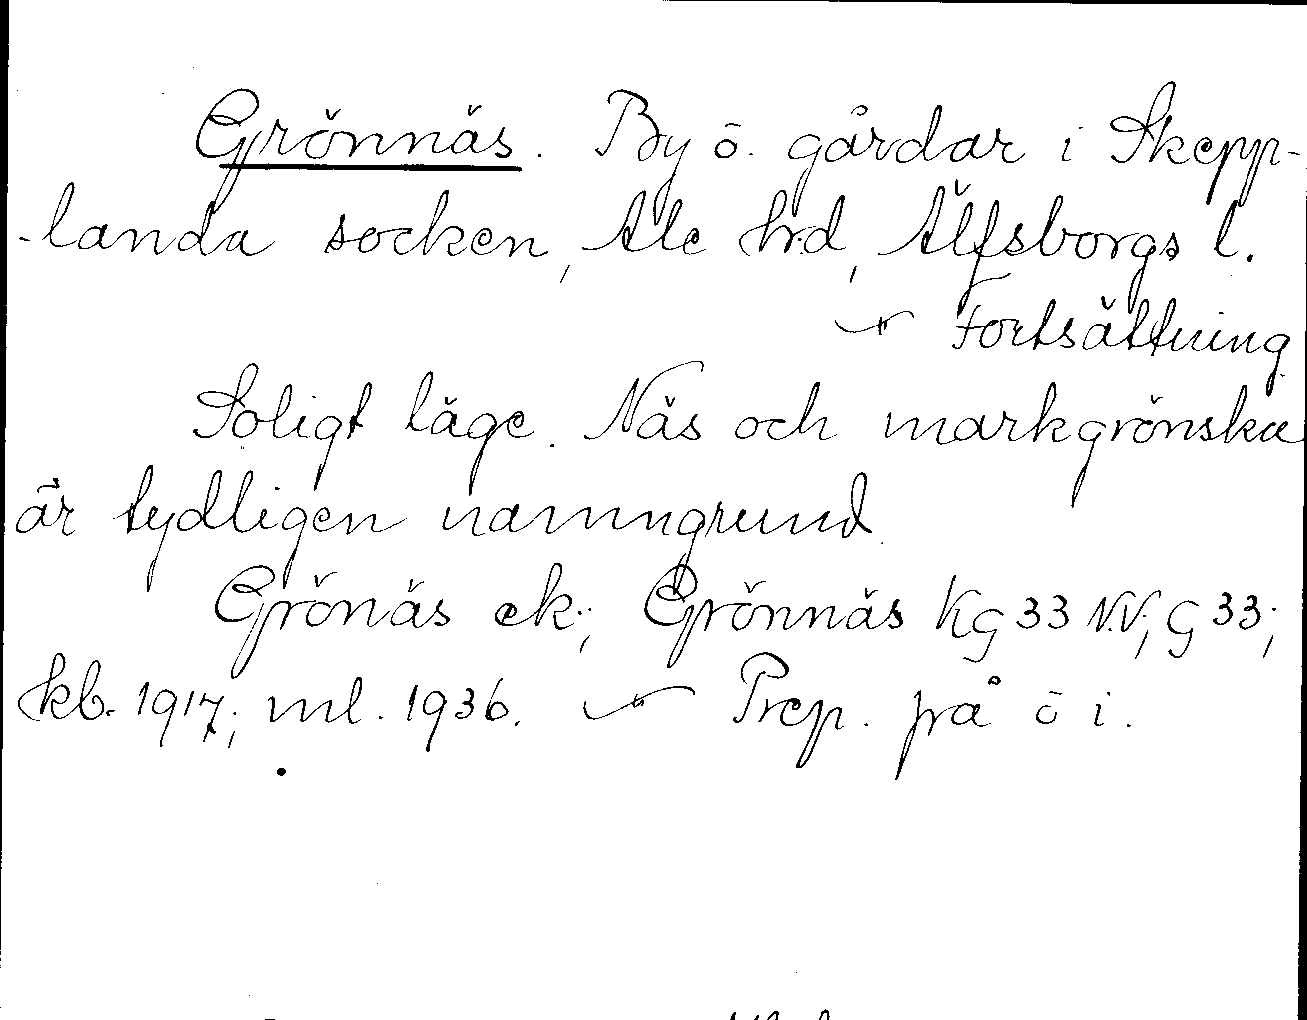 Grönnäs. By ö. gårdar i Skepp-
-landa socken, Ale hrd, Älfsborgs l.
Fortsättning
Soligt läge. Näs och markgrönska
är tydligen namngrund
Grönäs ek.; Grönnäs KG 33 N.V; G 33;
kb. 1917; ml. 1936. Prep. på ö i.